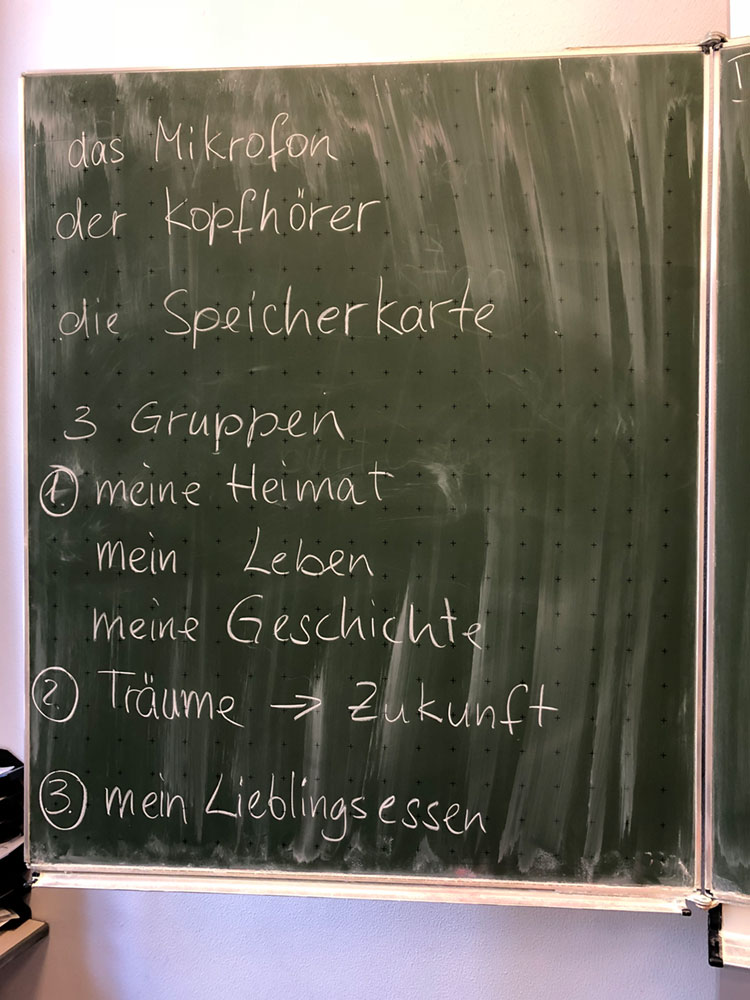 das Mikrofon
der Kopfhörer
die Speicherkarte
3 Gruppen
1. meine Heimat
mein Leben
meine Geschichte
2. Träume → Zukunft
3. mein Lieblingsessen